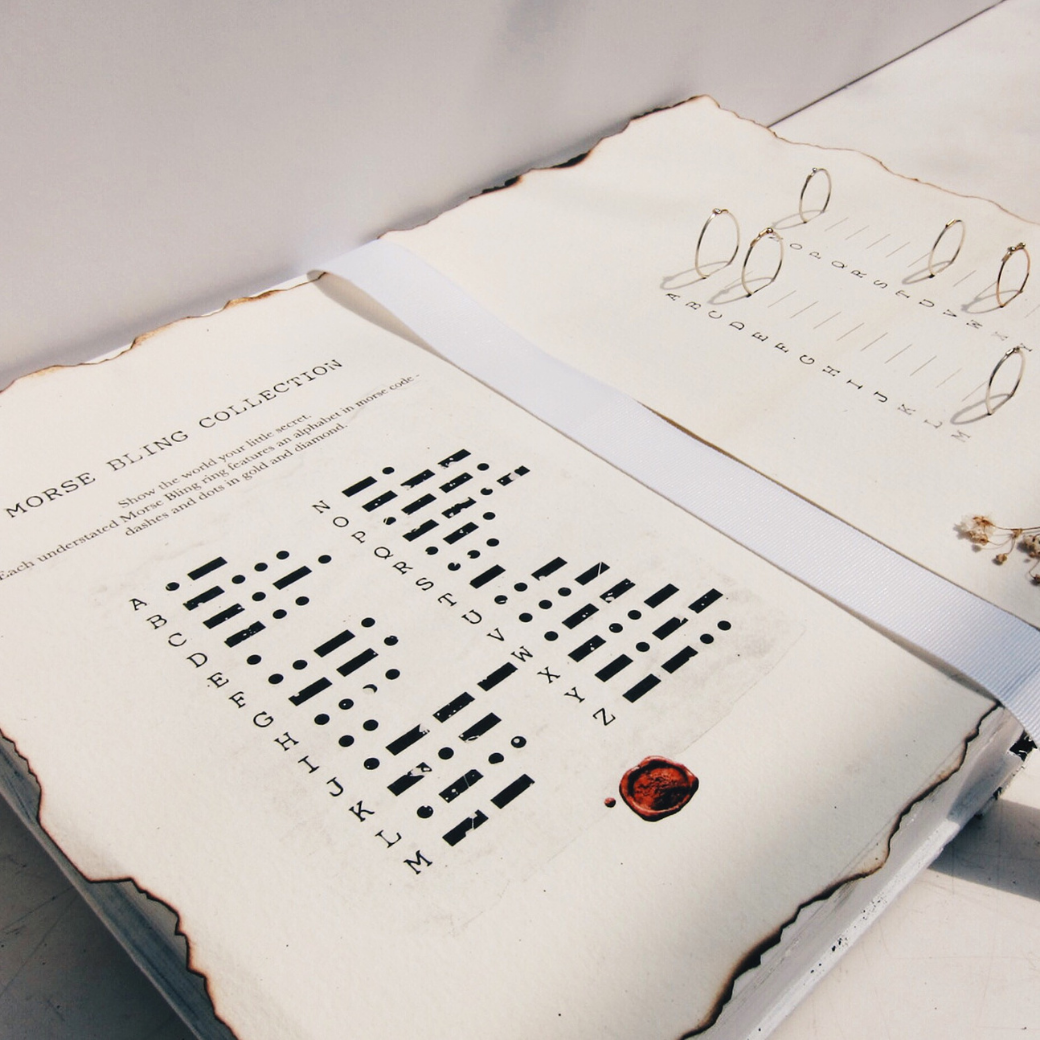 MORSE BLING COLLECTION
Show the world your little secret.
Each understated Morse Bling ring features an alphabet in morse code -
dashes and dots in gold and diamond.
A
B
C
D
E
F
G
H
I
J
K
L
M
N
O
P
Q
R
S
T
U
V
W
X
Y
Z
A
B
C
D
E
F
G
H
I
J
K
L
M
O
P
Q
R
S
T
U
V
W